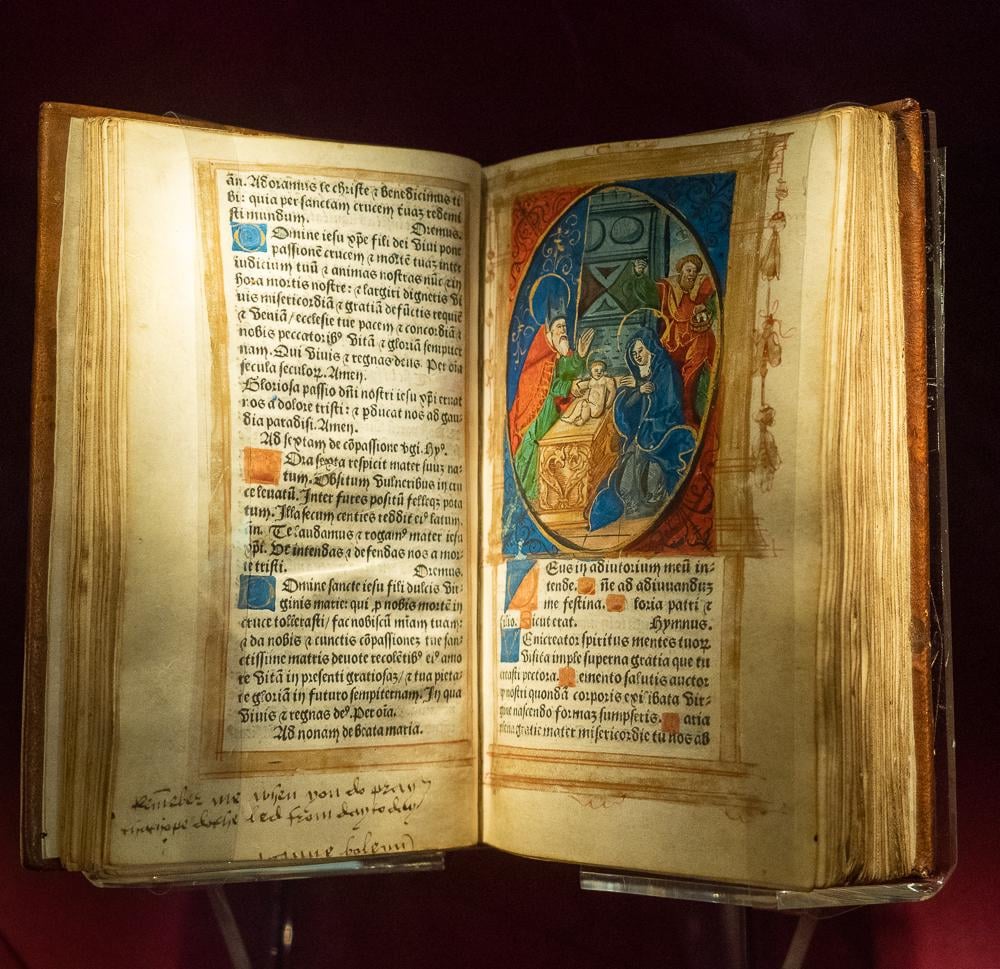 ān. Adoramus te christe ⁊ benedicimus ti
bi: quia per sanctam crucem tuaz redemi
sti mundum. Oremus.
Omine iesu xp̄e fili dei viui pone
passionē crucem ⁊ mortē tuaz inter
iudicium tuū ⁊ animas nostras nūc ⁊ in
hora mortis nostre: ⁊ largiri digneris vi
uis misericordiā ⁊ gratiā defūctis requiē
⁊ veniā/ ecclesie tue pacem ⁊ concordiā ⁊
nobis peccatorib⁹ vitā ⁊ gloriā sempiter
nam. Qui viuis ⁊ regnas deus. Per oīa
secula seculoꝝ. Amen.
Gloriosa passio dn̄i nostri iesu xp̄i eruat
nos a dolore tristi: ⁊ ꝑducat nos ad gau-
dia paradisi. Amen.
Ad sextam de cōpassione vgi. Hy⁹.
Ora sexta respicit mater suuz na-
tum. Obsitum vulneribus in cru
ce leuatū. Inter fures positū felleqz pota
tum. Illa secum centies reddit ei⁹ latum.
ān. Te laudamus ⁊ rogam⁹ mater iesu
xp̄i. Vt intendas ⁊ defendas nos a mor-
te tristi. Oremus.
Omine sancte iesu fili dulcis vir-
ginis marie: qui ꝓ nobis mortē in
cruce tollerasti/ fac nobiscū miam tuam:
⁊ da nobis ⁊ cunctis cōpassionez tue san-
ctissime matris deuote recolētib⁹ ei⁹ amo
re vitā in presenti gratiosaz/ ⁊ tua pieta-
te gloriā in futuro sempiternam. In qua
viuis ⁊ regnas de⁹. Per oīa.
Ad nonam de beata maria.
Remēber me when you do pray
that hope dothe led from day to day
anne boleyn
Eus in adiutorium meū in-
tende. ne ad adiuuanduz
me festina. loria patri ⁊
filio. Sicut erat. Hymnus.
Eni creator spiritus mentes tuoꝝ
visita imple superna gratia que tu
creasti pectora. emento salutis auctor
ꝙ nostri quondā corporis ex illibata vir-
gine nascendo formaz sumpseris. aria
plena gratie mater misericordie tu nos ab